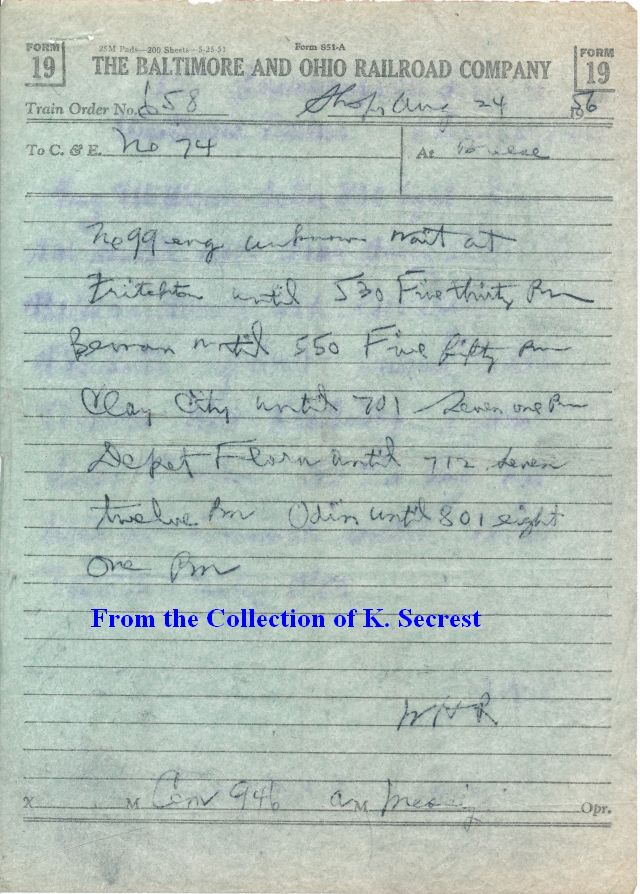 FORM 19
25M Pads—200 Sheets—5-25-51 Form 851-A
FORM 19
THE BALTIMORE AND OHIO RAILROAD COMPANY
Train Order No. 658 Shops Aug 24 1956
To C. & E. No 74 At Breese
No 99 eng unknown wait at
Fritchton until 530 Five thirty Pm
Beman until 550 Five fifty Pm
Clay City until 701 Seven one Pm
Depot Flora until 712 seven
twelve Pm Odin until 801 eight
One Pm
From the Collection of K. Secrest
X M Com 946 a M Opr.